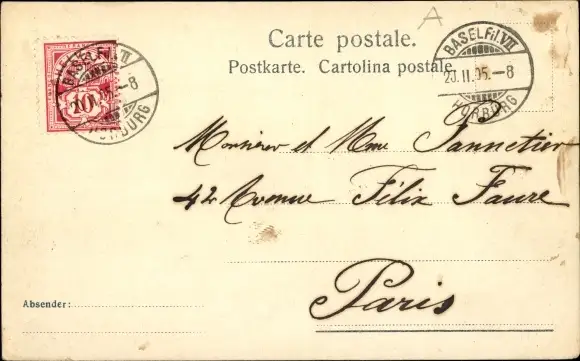 A
Carte postale.
Postkarte. Cartolina postale
BASEL Fil. VII
10
HORBURG
BASEL Fil. VII
20.II.05.–8
HORBURG
Monsieur et Mme Jannetier
42 Avenue Félix Faure
Paris
Absender: